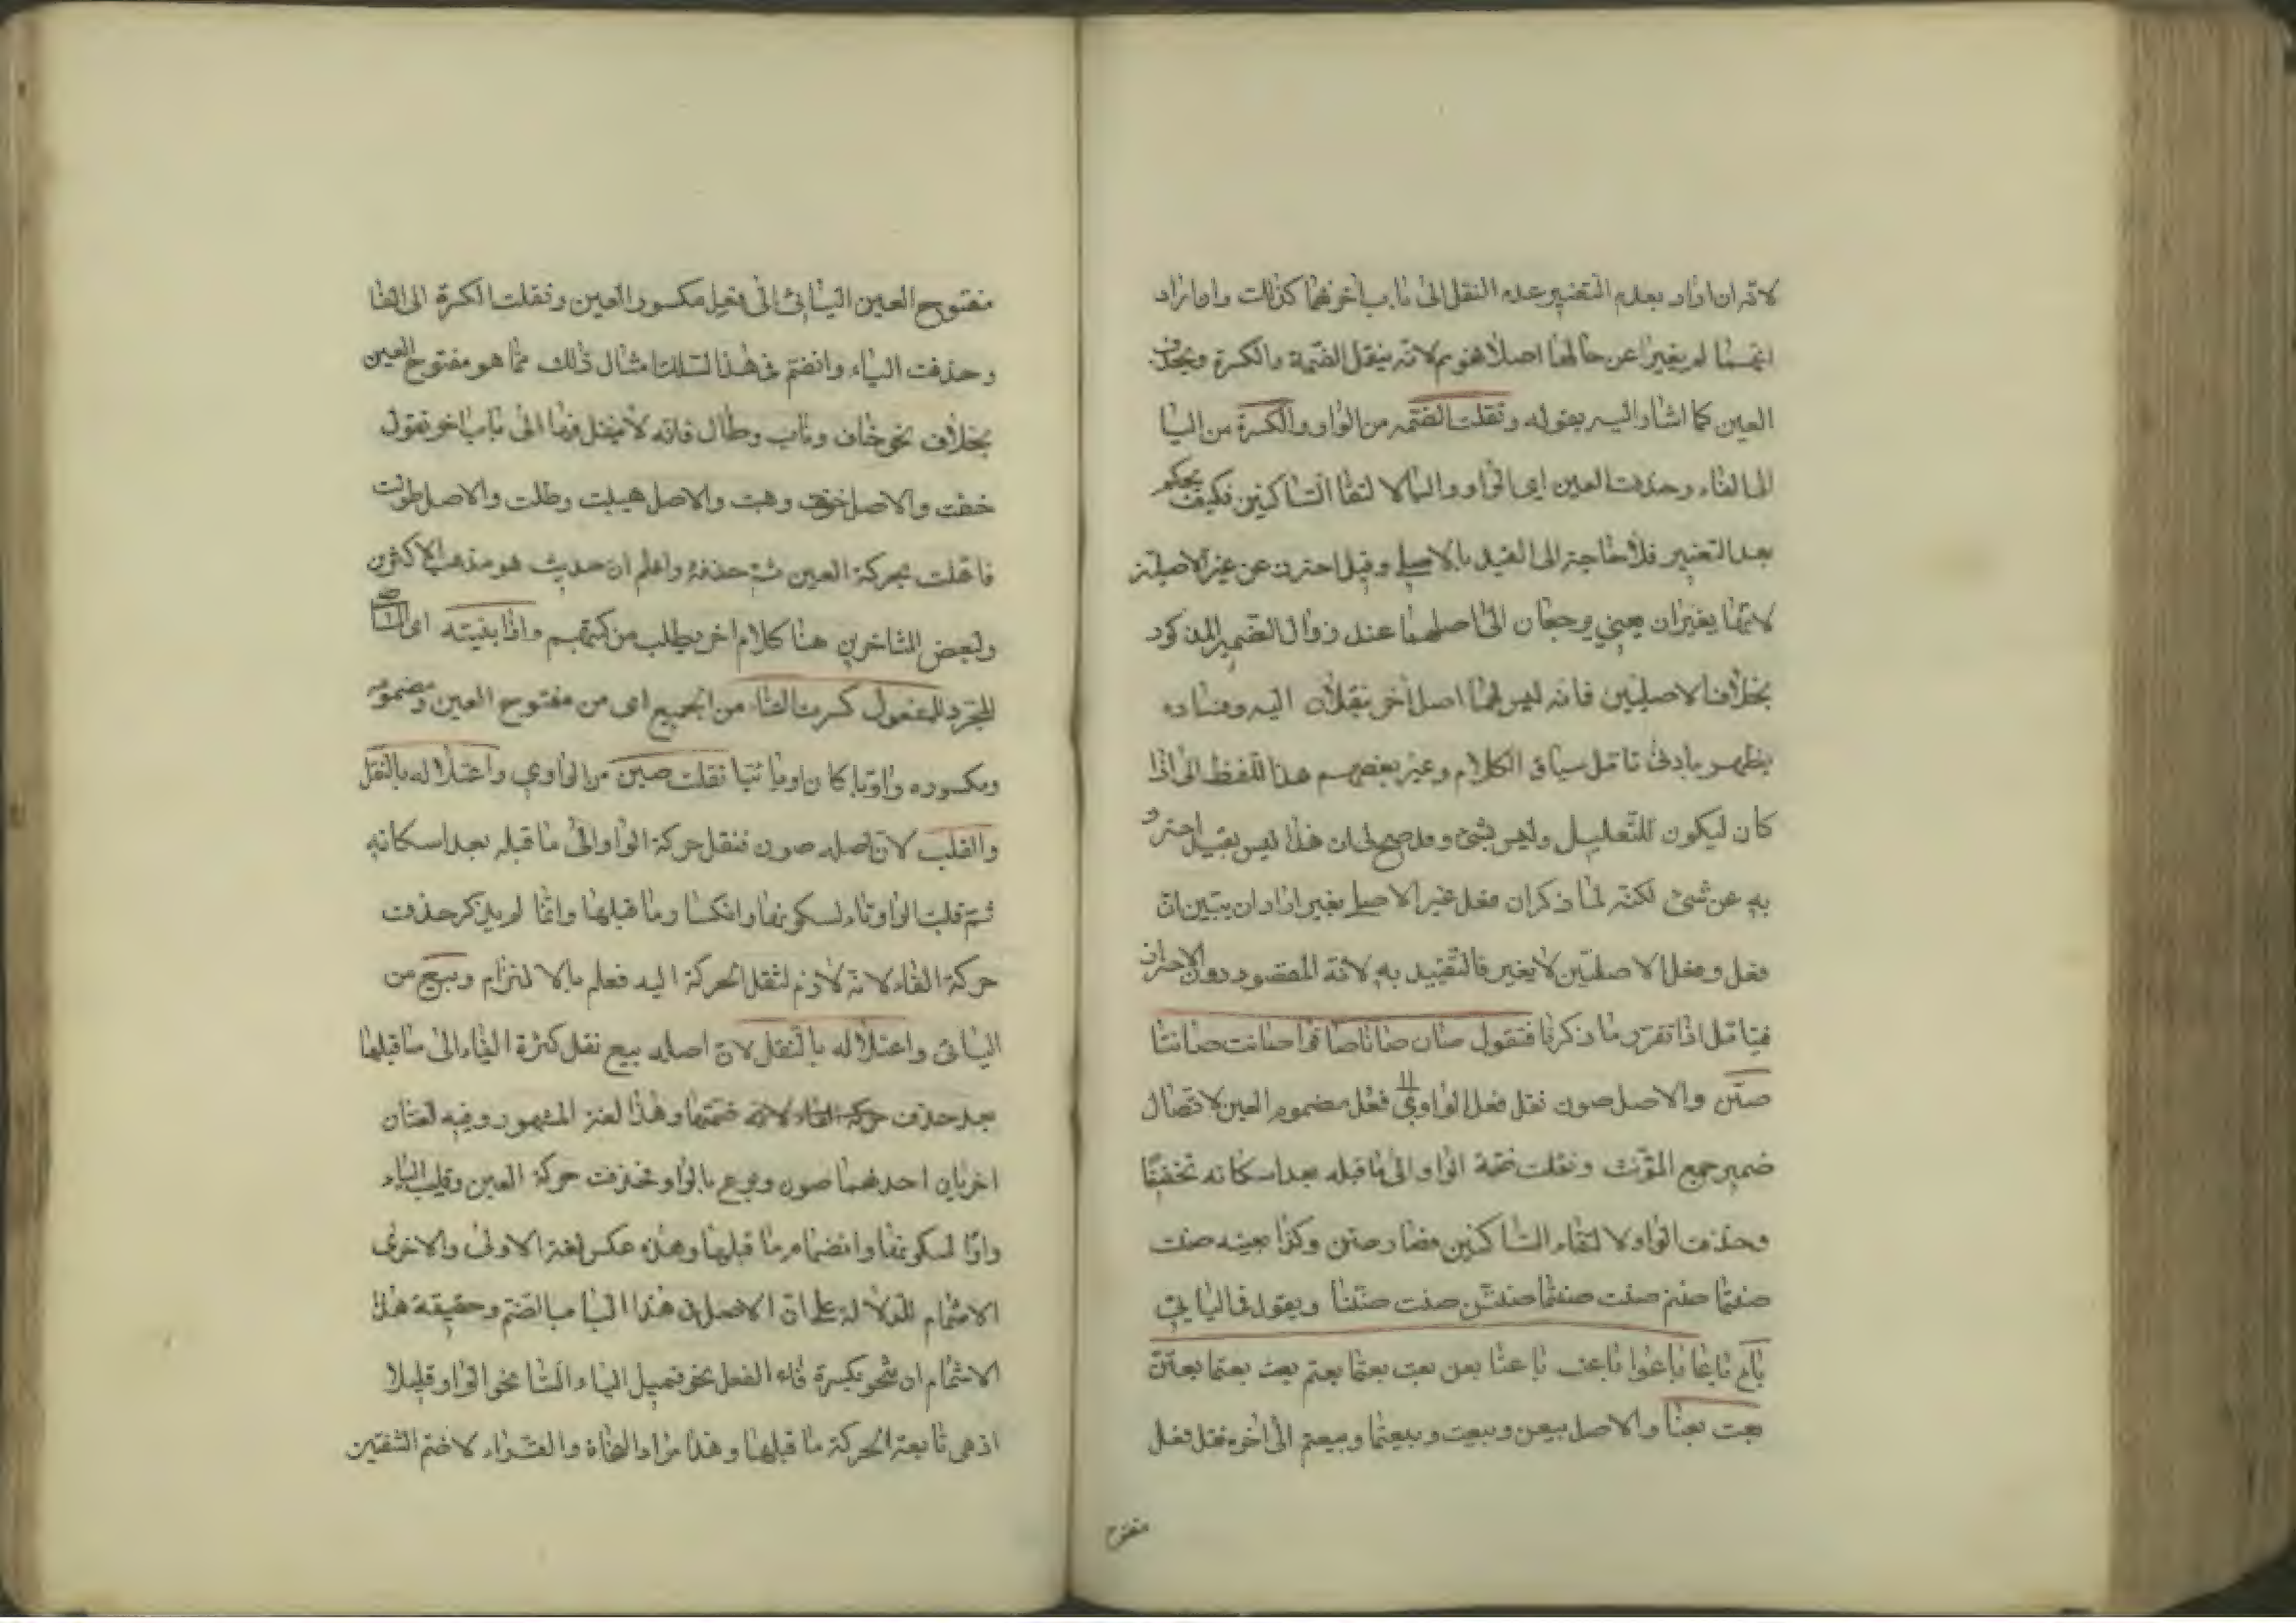 لانه ان اراد بعدم التغيير عدم النقل الى باب اخر فهما كذلك وان اراد
انهما لم يغيرا عن حالهما اصلا فهو م لانه ينقل الضمة والكسرة ويحذف
العين كما اشار اليه بقوله ونقلت الضمه من الواو والكسرة من اليا
الى الفاء وحذفت العين اى الواو واليا لالتقا الساكنين فكيف يحكم
بعد التغيير فلا حاجة الى القيد بالاصلى وقيل احترز عن غير الاصلية
لانهما يغيران يعني يرجعان الى اصلهما عند زوال الضمير المذكور
بخلاف الاصليين فانه ليس لهما اصل اخر ينقلان اليه وفساده
يظهر بادنى تامل سياق الكلام وغير بعضهم هذا اللفظ الى اذا
كان ليكون للتعليل وليس بشئ وقد صح لى ان هذا ليس بقيد احترز
به عن شئ لكنه لما ذكر ان فعل غير الاصلى يغير اراد ان يبين ان
فعل وفعل الاصليين لا يغير فالتقييد به لانه المقصود دون الاحتراز
فيتامل اذا تقرر ما ذكرنا فتقول صان صانا صانوا صانت صانتا
صنّ والاصل صون نقل فعل الواوي الى فعُل مضموم العين لاتصال
ضمير جمع المؤنث ونقلت ضمة الواو الى ما قبله بعد اسكانه تخفيفا
وحذفت الواو لالتقاء الساكنين فصار صن وكذا بعينه صنت
صنتما صنتم صنت صنتما صنتن صنت صننا ويقول فى اليايي
باع باعا باعوا باعت باعتا بعن بعت بعتما بعتم بعت بعتما بعتن
بعت بعنا والاصل بيعن وبيعت وبيعتما وبيعتم الى اخره نقل فعل
مفتوح
مفتوح العين اليائى الى فعل مكسور العين ونقلت الكسرة الى الفا
وحذفت الياء وانضم فى هذا السلك امثال ذلك مما هو مفتوح العين
بخلاف نحو خاف وهاب وطال فانه لا ينقل فيها الى باب اخر تقول
خفت والاصل خوفت وهبت والاصل هيبت وطلت والاصل طولت
فاعلت بحركة العين ثم حذفه واعلم ان حديث هو مذهب الاكثرين
ولبعض المتاخرين هنا كلام اخر يطلب من كتبهم واذا بنيته اى
المجرد للمفعول كسرت الفاء من الجميع اى من مفتوح العين ومضمومه
ومكسوره واويا كان او يائيا نقلت صين من الواوي واعتلاله بالنقل
والقلب لان اصله صون فنقل حركة الواو الى ما قبله بعد اسكانه
ثم قلبت الواو ياء لسكونها وانكسار ما قبلها وانما لم يذكر حذف
حركة الفاء لانه لازم لنقل الحركة اليه فعلم بالالتزام وبيع من
اليائى واعتلاله بالنقل لان اصله بيع نقل كسرة الياء الى ما قبلها
بعد حذف ضمتها وهذا لغة المشهور وفيه لغتان
اخريان احدهما صون وبوع بالواو فحذفت حركة العين وقلبت الياء
واوا لسكونها وانضمام ما قبلها وهذه عكس لغة الاولى والاخرى
الاشمام للدلالة على ان الاصل فى هذا الباب الضم وحقيقة هذا
الاشمام ان تنحو بكسرة فاء الفعل نحو فتميل الياء الساكنة نحو الواو قليلا
اذ هى تابعة لحركة ما قبلها وهذا مراد النحاة والقراء لا ضم الشفتين